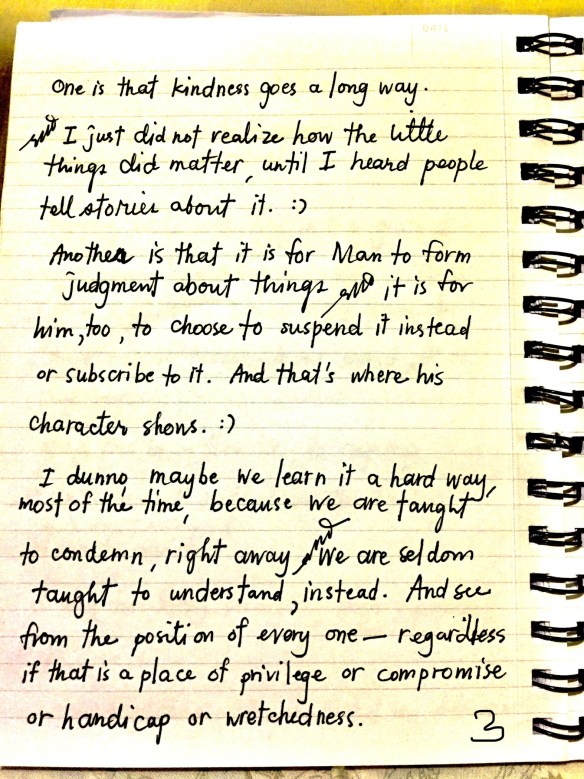 DATE
One is that kindness goes a long way.
and I just did not realize how the little
things did matter, until I heard people
tell stories about it. :)
Another is that it is for Man to form
judgment about things and it is for
him, too, to choose to suspend it instead
or subscribe to it. And that's where his
character shows. :)
I dunno, maybe we learn it a hard way,
most of the time, because we are taught
to condemn, right away, and We are seldom
taught to understand, instead. And see
from the position of every one — regardless
if that is a place of privilege or compromise
or handicap or wretchedness.
3